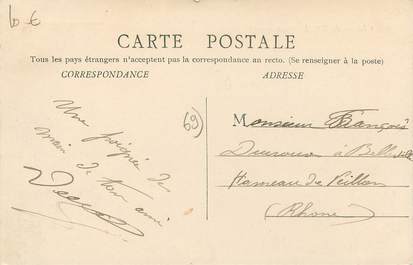 6 €
CARTE POSTALE
Tous les pays étrangers n'acceptent pas la correspondance au recto. (Se renseigner à la poste)
CORRESPONDANCE
ADRESSE
69
Une poignée de
main de ton ami
Monsieur François
à
Hameau de
(Rhône)